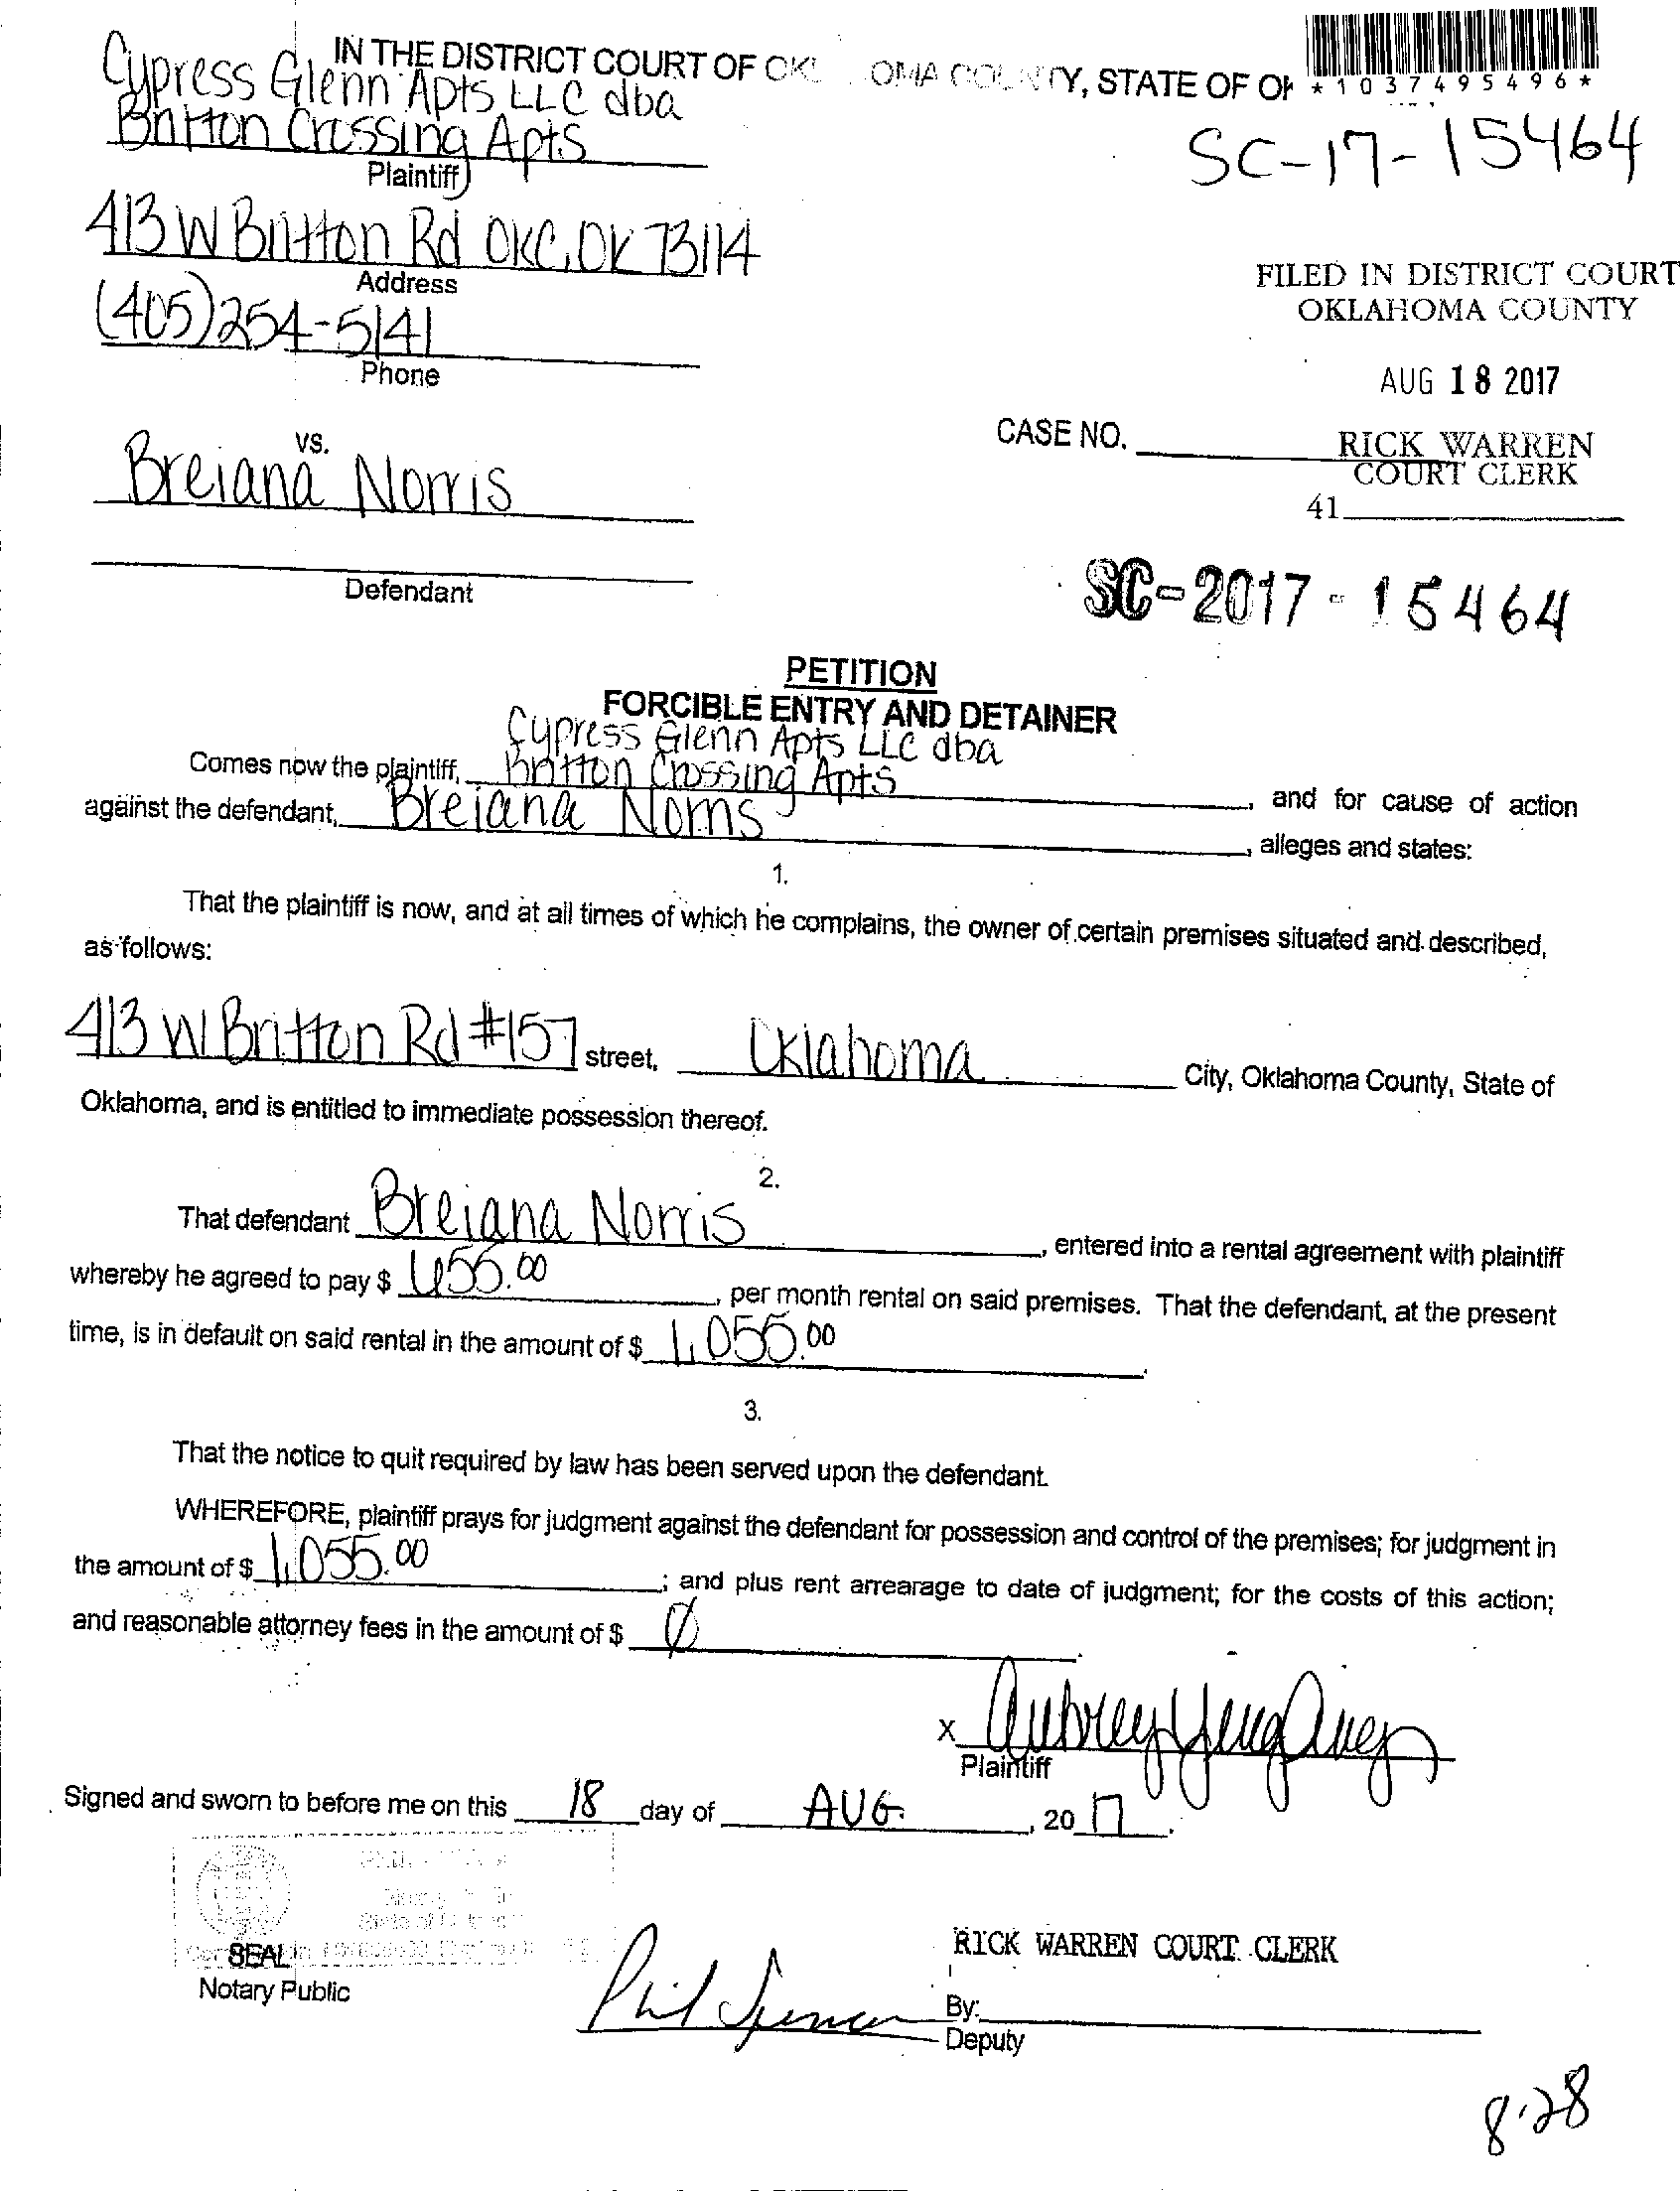 IN THE DISTRICT COURT OF OKL OMA COUNTY, STATE OF OK
*1037495496*
Cypress Glenn Apts LLC dba
Britton Crossing Apts
Plaintiff
SC-17-15464
413 W Britton Rd OKC, OK 73114
Address
(405)254-5141
Phone
FILED IN DISTRICT COURT
OKLAHOMA COUNTY
AUG 18 2017
CASE NO.
RICK WARREN
COURT CLERK
41
vs.
Breiana Norris
Defendant
SC-2017-15464
PETITION
FORCIBLE ENTRY AND DETAINER
Cypress Glenn Apts LLC dba
Comes now the plaintiff, Britton Crossing Apts, and for cause of action
against the defendant, Breiana Norris, alleges and states:
1.
That the plaintiff is now, and at all times of which he complains, the owner of certain premises situated and described,
as follows:
413 W Britton Rd #157 street, Oklahoma City, Oklahoma County, State of
Oklahoma, and is entitled to immediate possession thereof.
2.
That defendant Breiana Norris, entered into a rental agreement with plaintiff
whereby he agreed to pay $ 655.00, per month rental on said premises. That the defendant, at the present
time, is in default on said rental in the amount of $ 1,055.00.
3.
That the notice to quit required by law has been served upon the defendant.
WHEREFORE, plaintiff prays for judgment against the defendant for possession and control of the premises; for judgment in
the amount of $ 1,055.00; and plus rent arrearage to date of judgment; for the costs of this action;
and reasonable attorney fees in the amount of $ Ø.
X
Plaintiff
Signed and sworn to before me on this 18 day of AUG., 20 17.
SEAL
Notary Public
RICK WARREN COURT CLERK
Phil Spencer
By:
Deputy
8.28